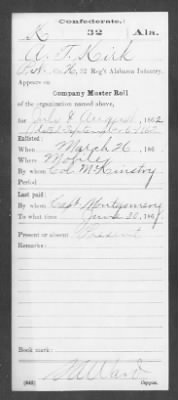 Confederate.
K 32 Ala.
A. T. Kirk
Pvt., Co. K, 32 Reg't Alabama Infantry.
Appears on
Company Muster Roll
of the organization named above,
for July & August, 1862
Enlisted:
When March 26, 186
Where Mobile
By whom Col. McKinstry
Period
Last paid:
By whom Capt. Montgomery
To what time June 30, 186
Present or absent Present
Remarks:
Book mark:
(642) Copyist.